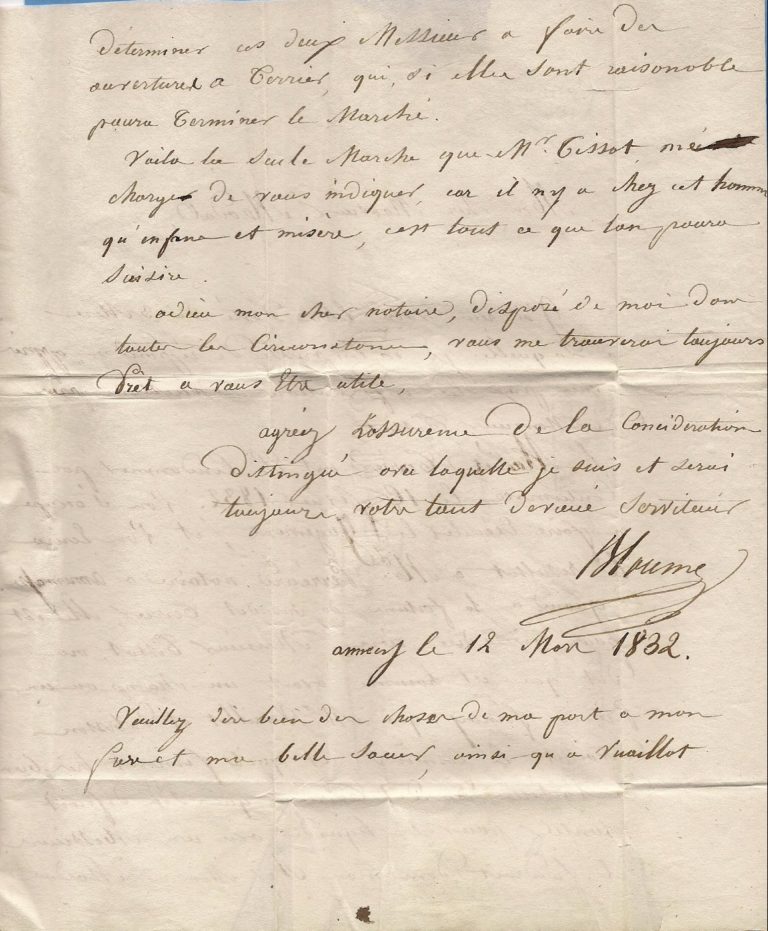 déterminer ces deux Messieurs a faire des
ouvertures a Terrier, qui, si elle sont raisonoble
poura Terminer le Marché.
Voila la seule Marche que Mr. Tissot m'é
charger de vous indiquer, car il ny a chez cet homme
qu'infame et misere, cest tout ce que lon poura
saisire.
adieu mon cher notaire, disposé de moi dans
toutes les Circonstance, vous me trouverai toujours
Pret a vous Etre utile,
agréez Lassurence De la Concideration
distingué avec laquelle je suis et serai
toujours votre tout devoué Serviteur
annecy le 12 Mars 1832.
Veuillez dire bien des choses de ma part a mon
frere et ma belle Soeur, ainsi qu'a Vuaillot